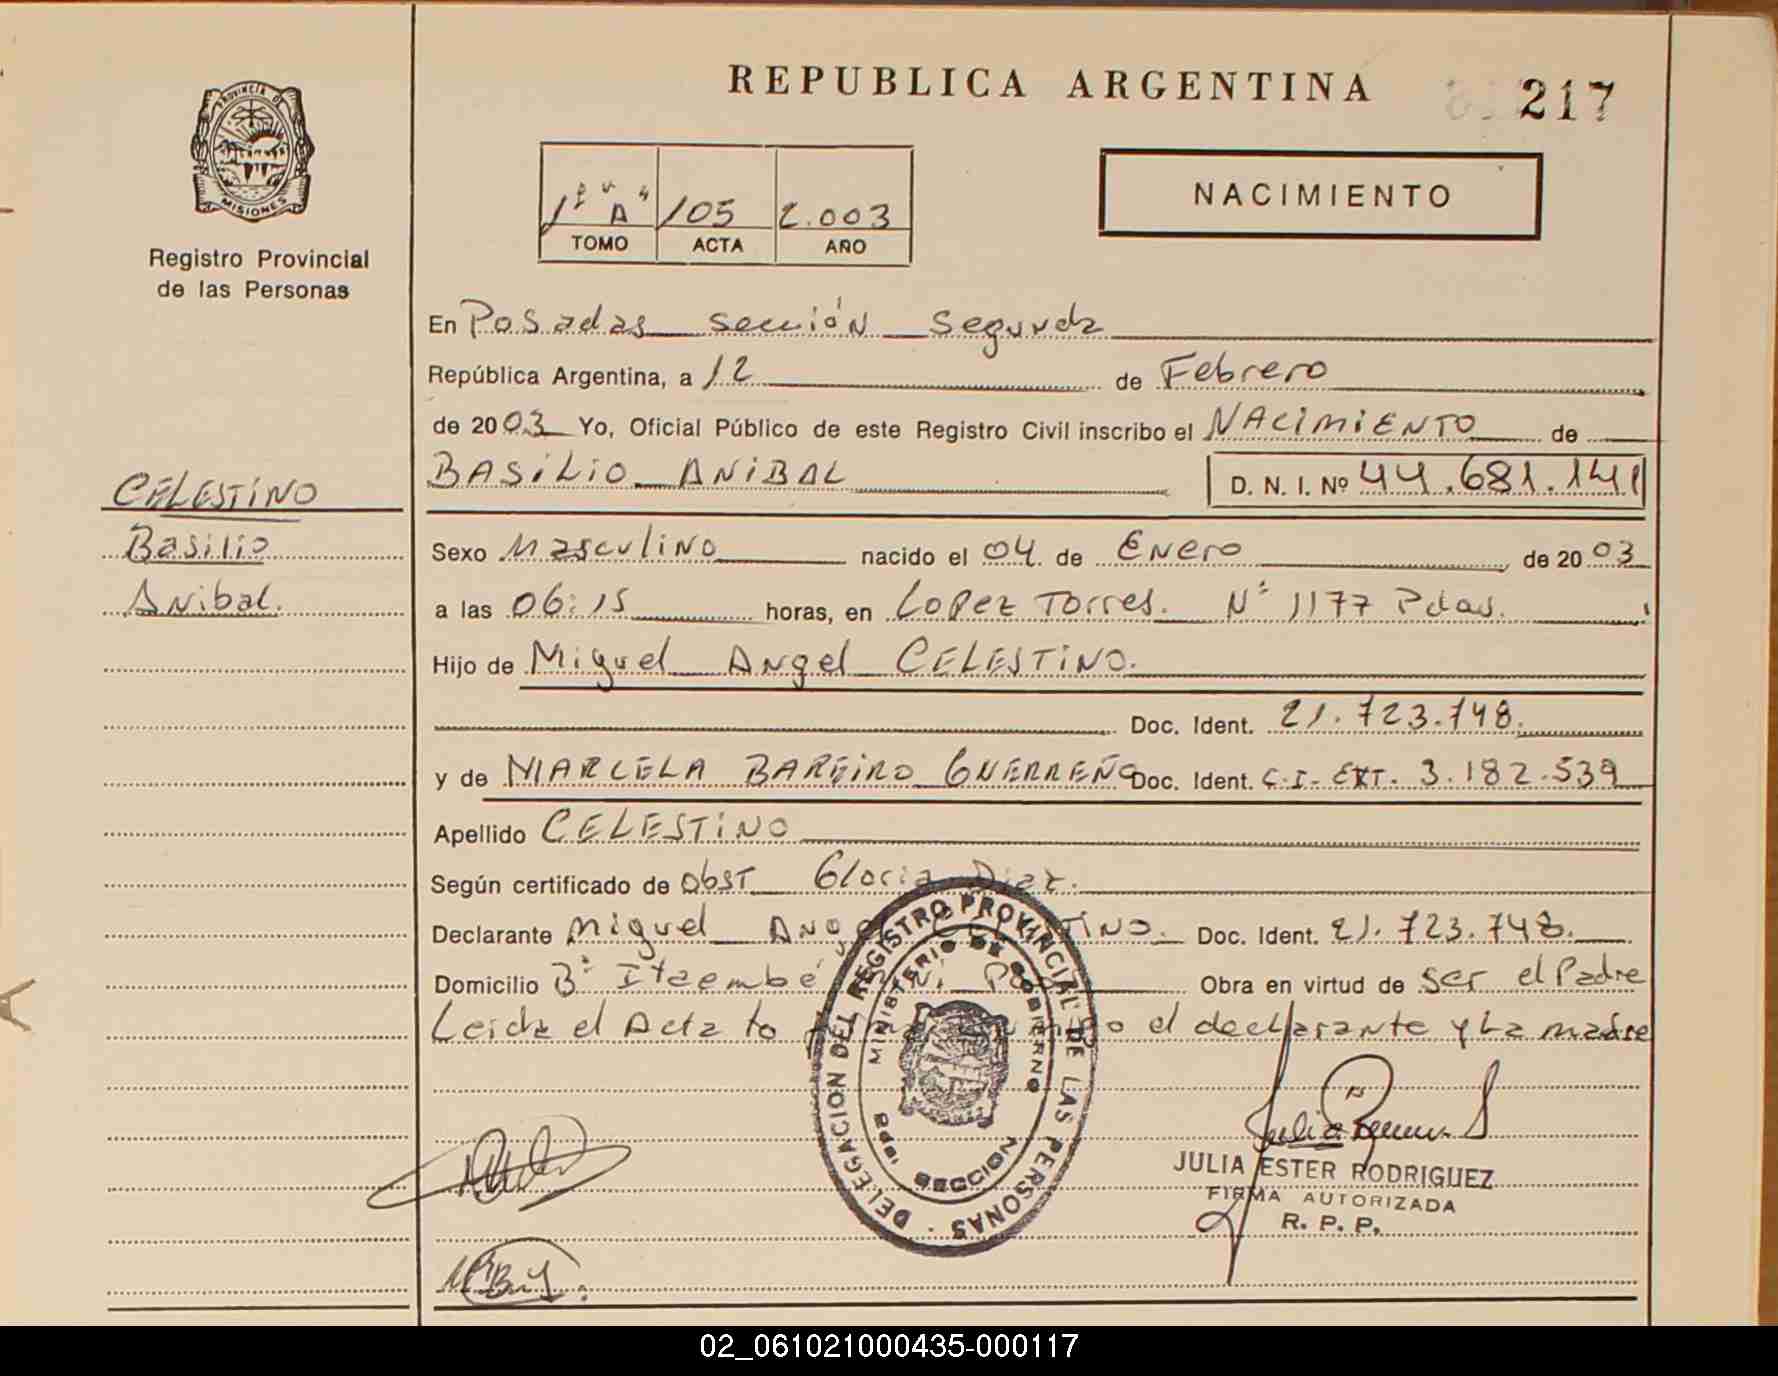 REPUBLICA ARGENTINA
217
PROVINCIA D
MISIONES
Registro Provincial
de las Personas
1º "A" 105 2.003
TOMO ACTA AÑO
NACIMIENTO
En Posadas sección segunda
República Argentina, a 12 de Febrero
de 2003 Yo, Oficial Público de este Registro Civil inscribo el NACIMIENTO de
BASILIO ANIBAL D. N. I. Nº 44.681.141
CELESTINO
Basilio
Anibal.
Sexo Masculino nacido el 04 de Enero de 2003
a las 06:15 horas, en Lopez Torres. Nº 1177 Pdas.
Hijo de Miguel Angel CELESTINO.
Doc. Ident. 21.723.748.
y de MARCELA BAREIRO GUERREÑO Doc. Ident. C.I. EXT. 3.182.539
Apellido CELESTINO
Según certificado de Obst Gloria Diaz.
Declarante Miguel TINO. Doc. Ident. 21.723.748.
Domicilio Bº Itaembé Obra en virtud de ser el Padre
Leida el Acta el declarante y La madre
DELEGACION DEL REGISTRO PROVINCIAL DE LAS PERSONAS
MINISTERIO DE GOBIERNO
SECCION
JULIA ESTER RODRIGUEZ
FIRMA AUTORIZADA
R. P. P.
02_061021000435-000117